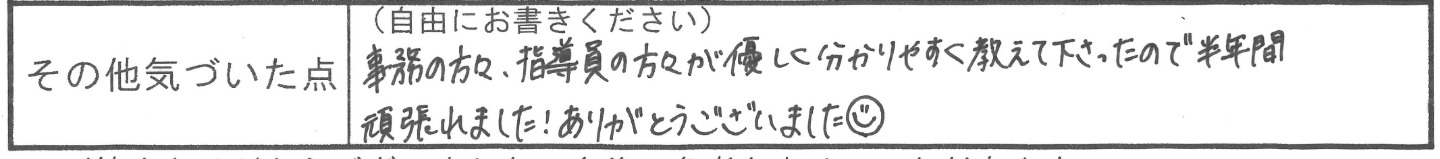 (自由にお書きください)
その他気づいた点
事務の方々、指導員の方々が優しく分かりやすく教えて下さったので半年間
頑張れました！ありがとうございました☺